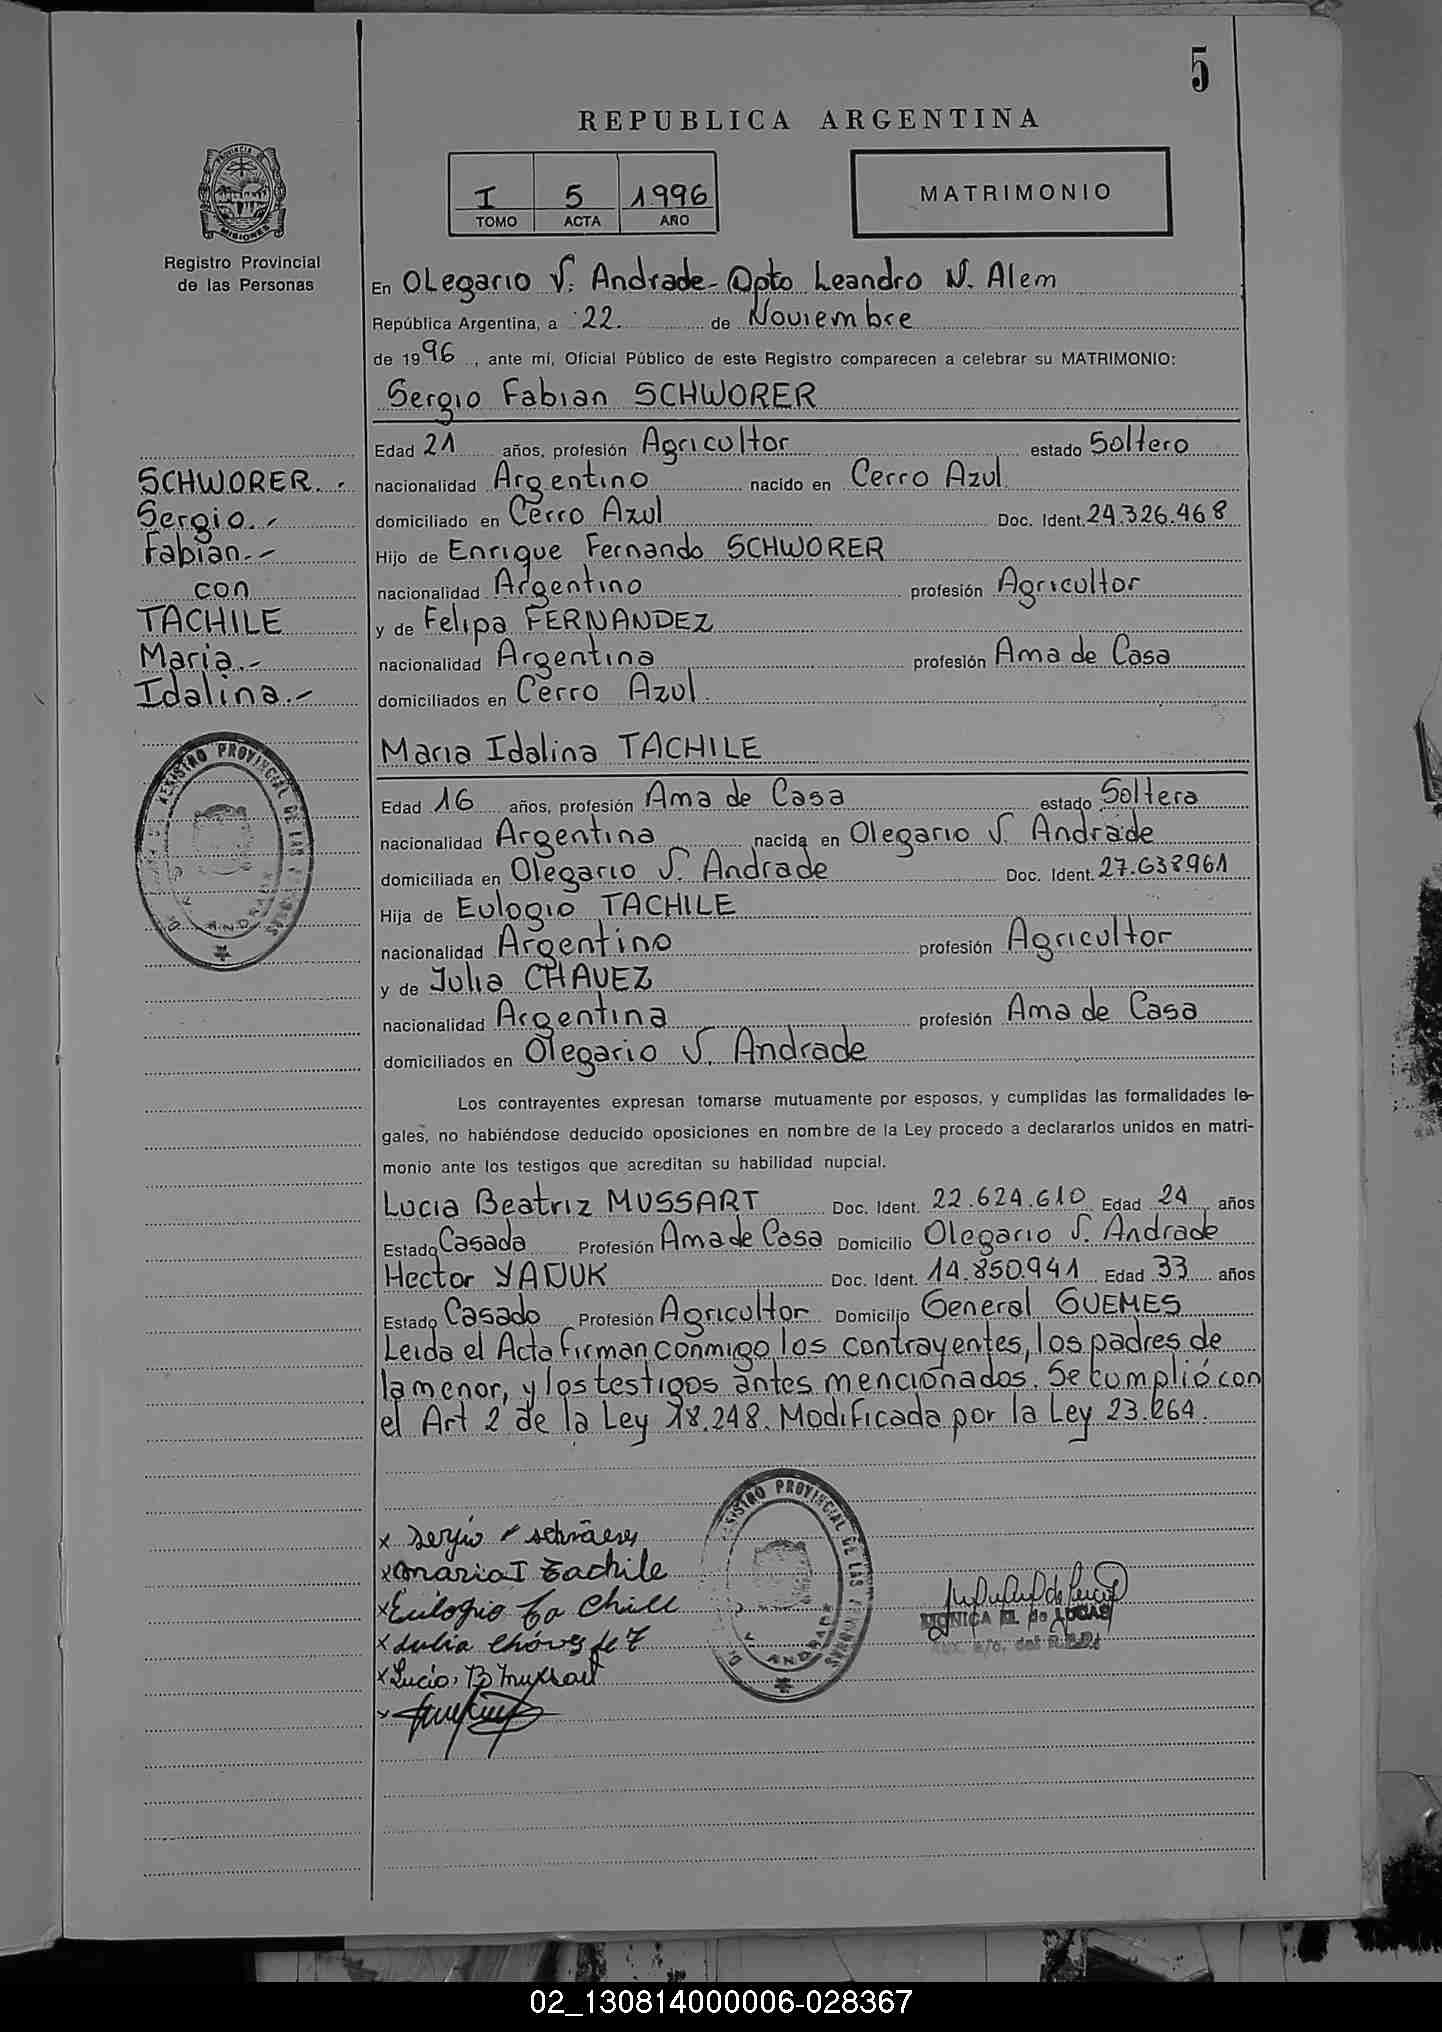 5
REPUBLICA ARGENTINA
I 5 1996
TOMO ACTA AÑO
MATRIMONIO
PROVINCIA DE
MISIONES
Registro Provincial
de las Personas
En OLegario V. Andrade - Dpto Leandro N. Alem
República Argentina, a 22. de Noviembre
de 1996, ante mí, Oficial Público de este Registro comparecen a celebrar su MATRIMONIO:
Sergio Fabian SCHWORER
Edad 21 años, profesión Agricultor estado Soltero
nacionalidad Argentino nacido en Cerro Azul
domiciliado en Cerro Azul Doc. Ident. 24.326.468
Hijo de Enrique Fernando SCHWORER
nacionalidad Argentino profesión Agricultor
y de Felipa FERNANDEZ
nacionalidad Argentina profesión Ama de Casa
domiciliados en Cerro Azul.
SCHWORER.-
Sergio.-
Fabian.-
con
TACHILE
Maria.-
Idalina.-
Maria Idalina TACHILE
Edad 16 años, profesión Ama de Casa estado Soltera
nacionalidad Argentina nacida en Olegario V. Andrade
domiciliada en Olegario V. Andrade Doc. Ident. 27.638961
Hija de Eulogio TACHILE
nacionalidad Argentino profesión Agricultor
y de Julia CHAVEZ
nacionalidad Argentina profesión Ama de Casa
domiciliados en Olegario V. Andrade
REGISTRO PROVINCIAL DE LAS
V. ANDRADE
Los contrayentes expresan tomarse mutuamente por esposos, y cumplidas las formalidades le-
gales, no habiéndose deducido oposiciones en nombre de la Ley procedo a declararlos unidos en matri-
monio ante los testigos que acreditan su habilidad nupcial.
Lucia Beatriz MUSSART Doc. Ident. 22.624.610 Edad 24 años
Estado Casada Profesión Ama de Casa Domicilio Olegario V. Andrade
Hector YADUK Doc. Ident. 14.850.941 Edad 33 años
Estado Casado Profesión Agricultor Domicilio General GUEMES
Leida el Acta firman conmigo los contrayentes, los padres de
la menor, y los testigos antes mencionados. Se cumplió con
el Art 2 de la Ley 18.248. Modificada por la Ley 23.264.
REGISTRO PROVINCIAL DE LAS
V. ANDRADE
x Sergio F
x Maria I Tachile
x Eulogio Ta Chile
x Julia Cháves de T
x Lucia B Mussart
MONICA de LUCAS
02_130814000006-028367